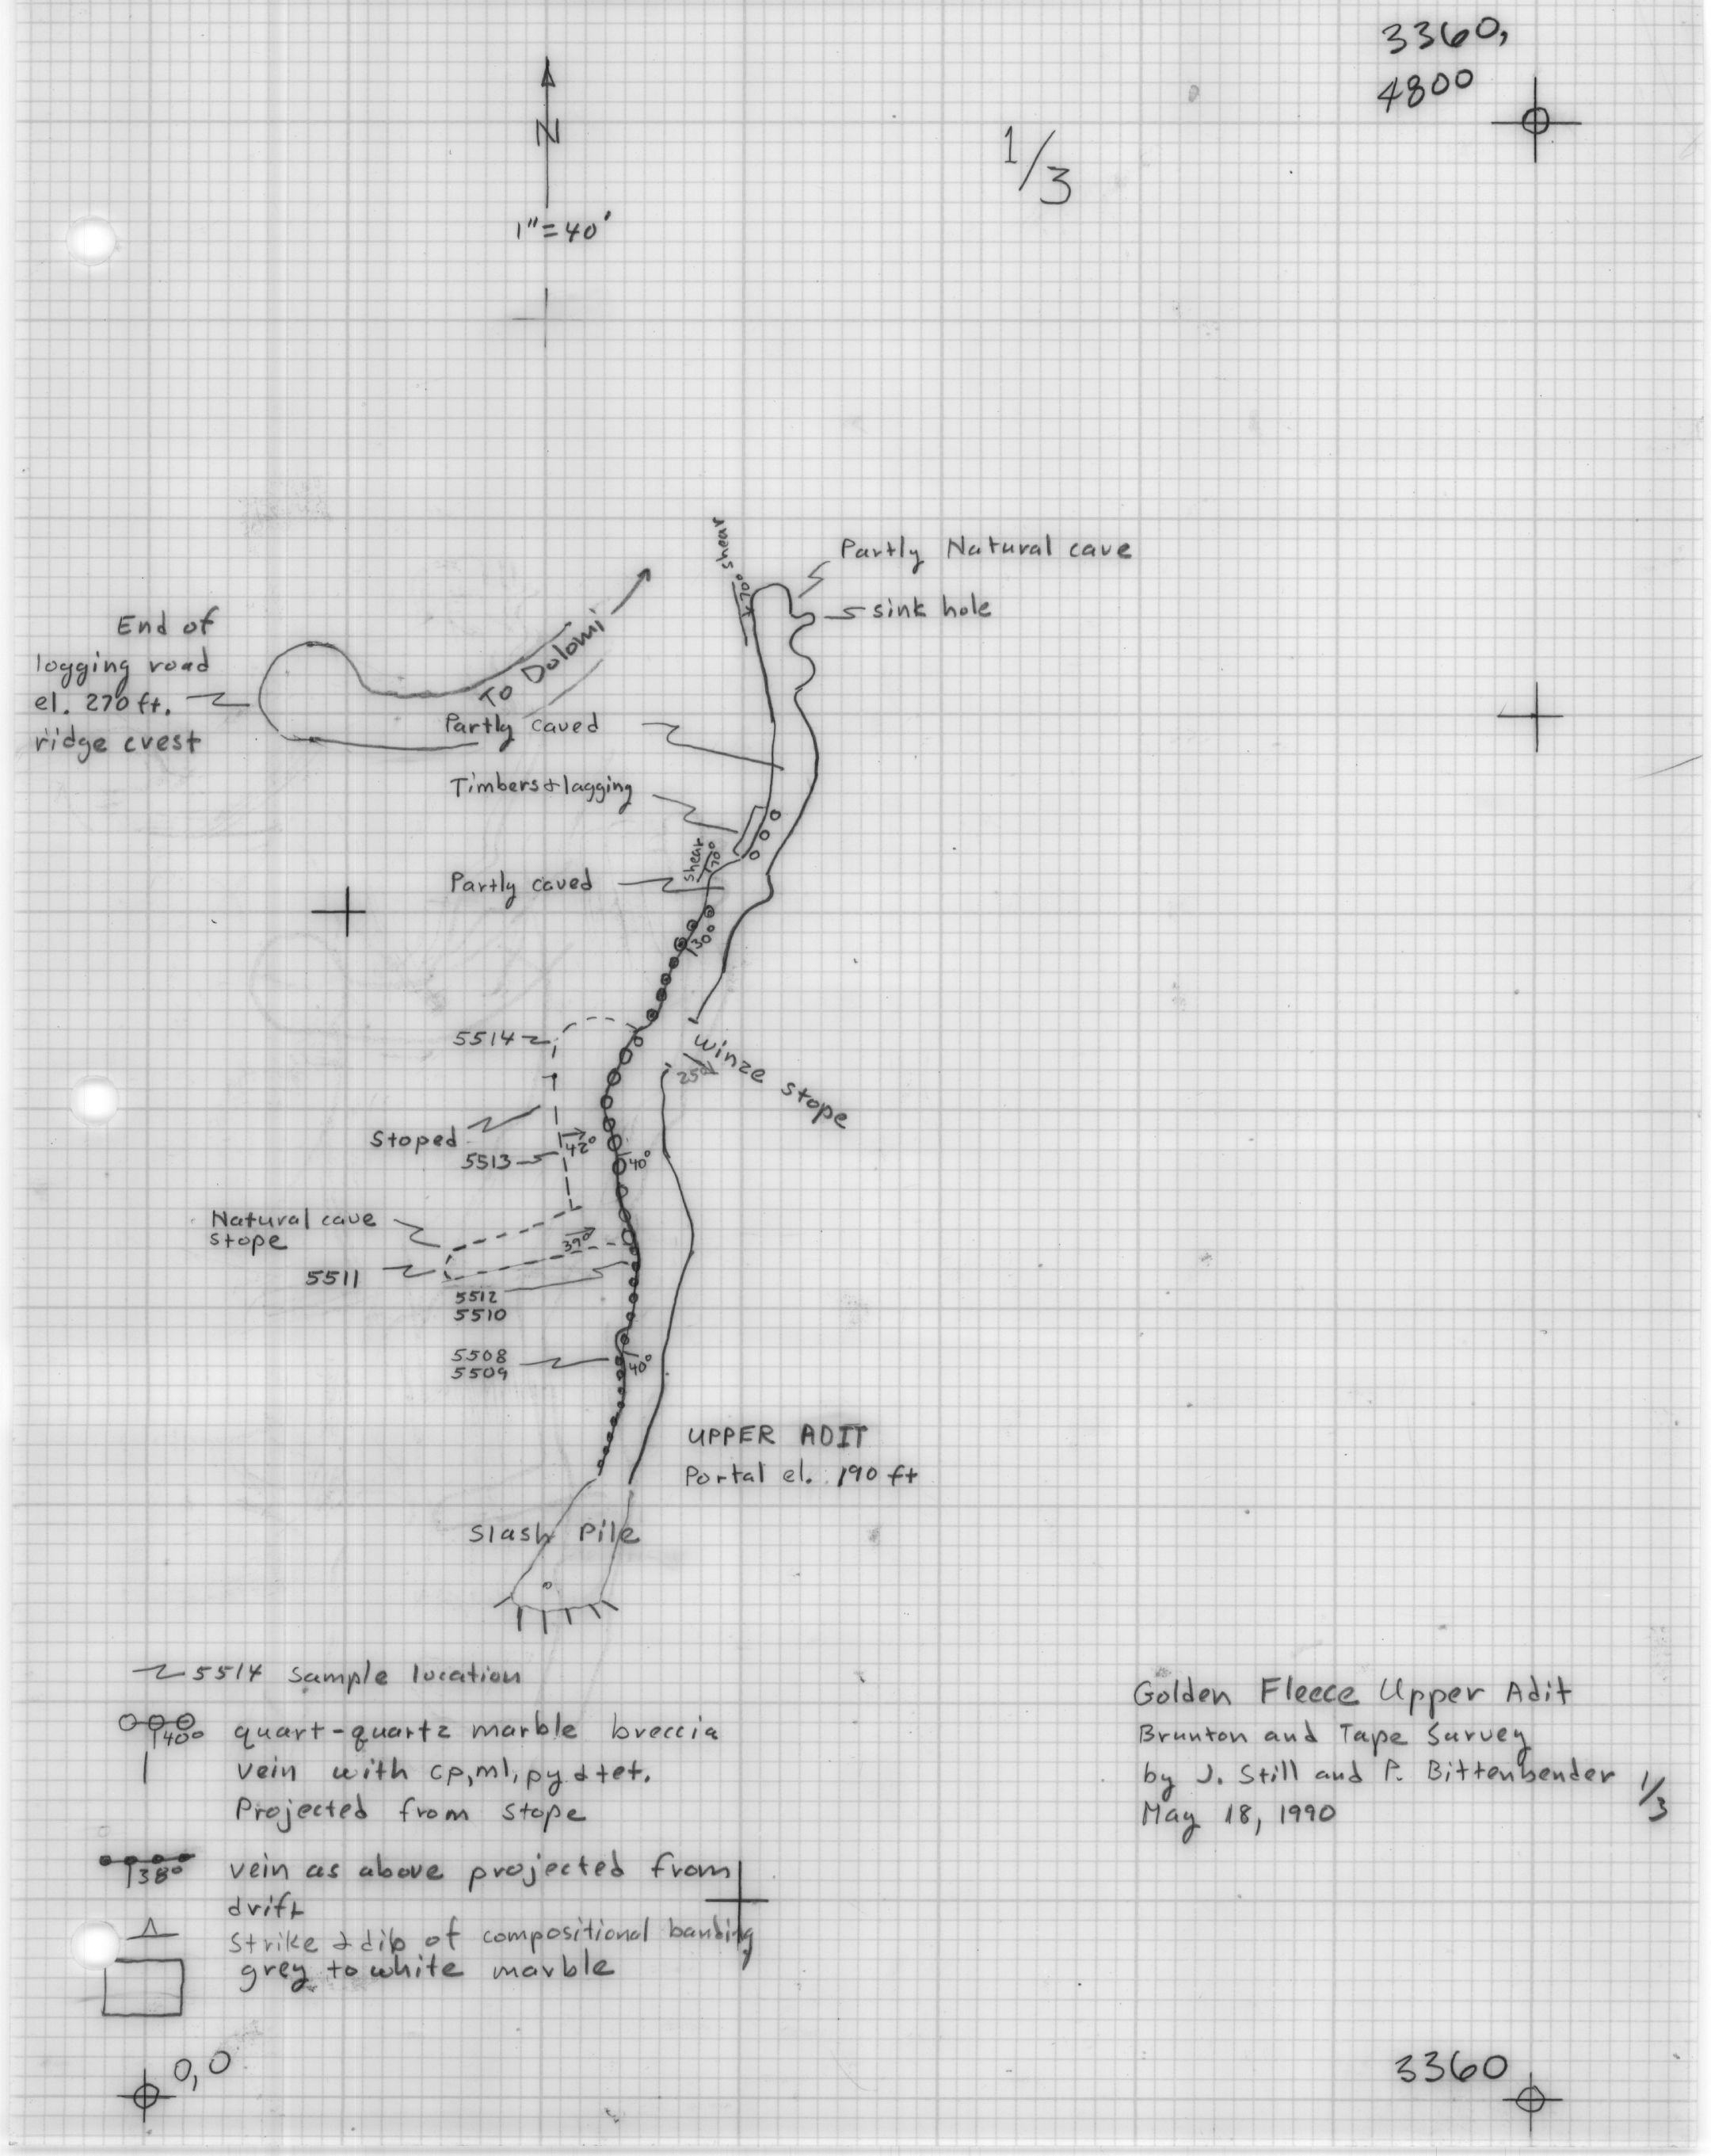 3360,
4800
N
1/3
1"=40'
shear
70°
Partly Natural cave
sink hole
End of
logging road
el. 270 ft.
ridge crest
To Dolomi
Partly caved
Timbers & lagging
shear
70°
Partly caved
30°
5514
winze stope
25°
Stoped
42°
5513
40°
Natural cave
stope
39°
5511
5512
5510
5508
5509
40°
UPPER ADIT
Portal el. 190 ft
Slash Pile
5514 sample location
40° quart-quartz marble breccia
vein with cp, ml, py & tet.
Projected from stope
38° vein as above projected from
drift
Strike & dip of compositional banding
grey to white marble
Golden Fleece Upper Adit
Brunton and Tape Survey
by J. Still and P. Bittenbender
May 18, 1990
1/3
0,0
3360